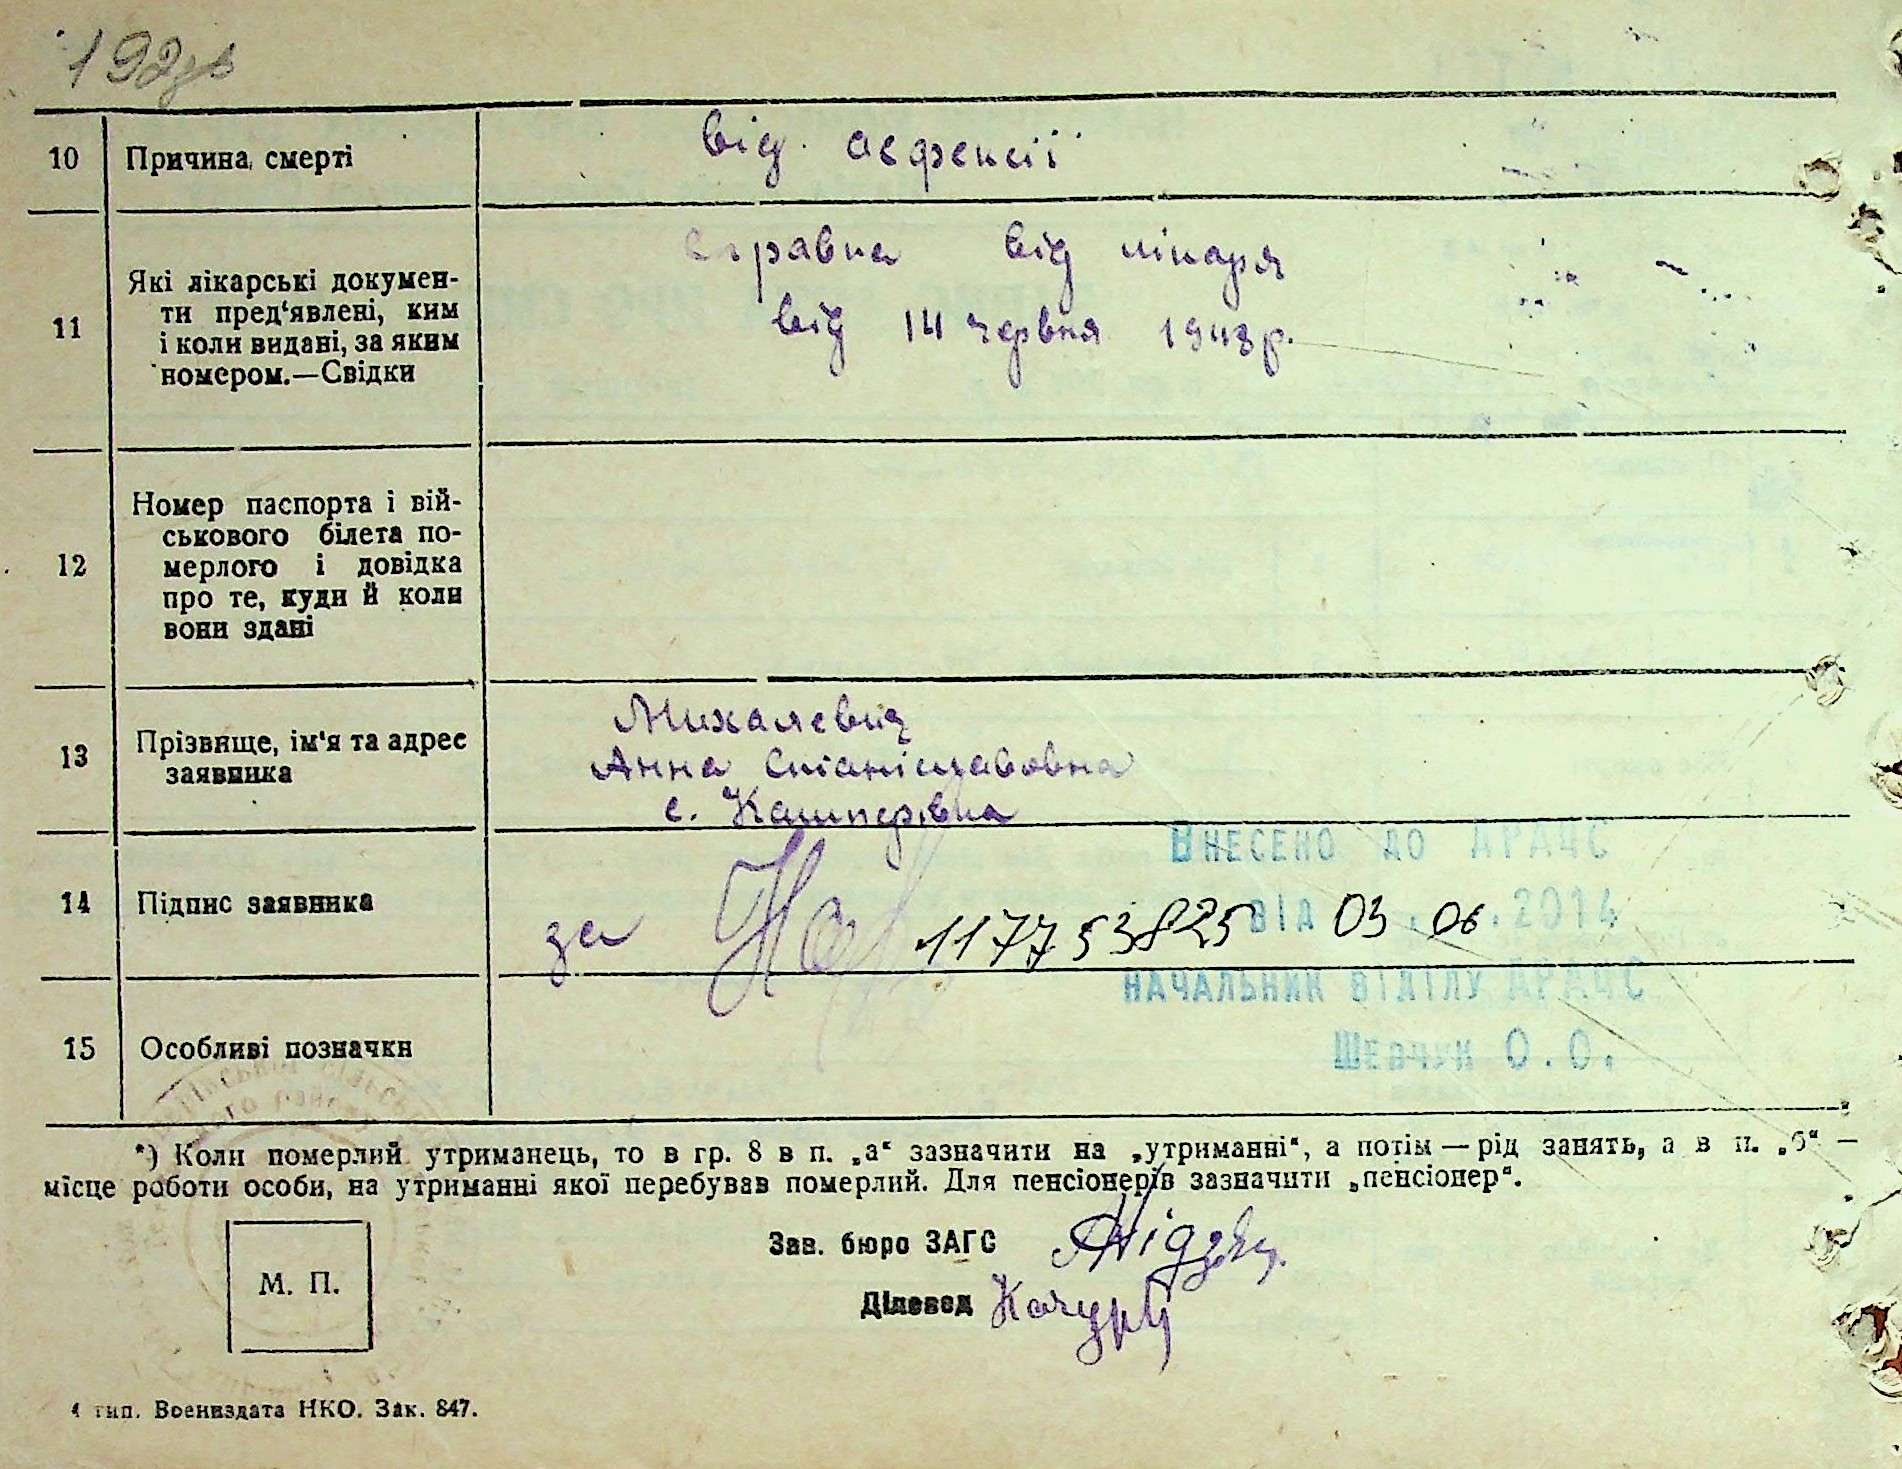 192зв
10 Причина смерті
від асфексії
11 Які лікарські докумен-
ти пред‘явлені, ким
і коли видані, за яким
номером.—Свідки
справка від лікаря
від 14 червня 1948р.
12 Номер паспорта і вій-
ськового білета по-
мерлого і довідка
про те, куди й коли
вони здані
13 Прізвище, ім‘я та адрес
заявника
Михалевич
Анна Станіславовна
с. Кашперівка
14 Підпис заявника
за 117753825
Внесено до ДРАЦС
від 03.06.2014
начальник відділу ДРАЦС
Шевчук О.О.
15 Особливі позначки
*) Коли померлий утриманець, то в гр. 8 в п. „а“ зазначити на „утриманні“, а потім — рід занять, а в п. „б“ —
місце роботи особи, на утриманні якої перебував померлий. Для пенсіонерів зазначити „пенсіонер“.
М. П.
Зав. бюро ЗАГС
Діловод
тип. Воениздата НКО. Зак. 847.